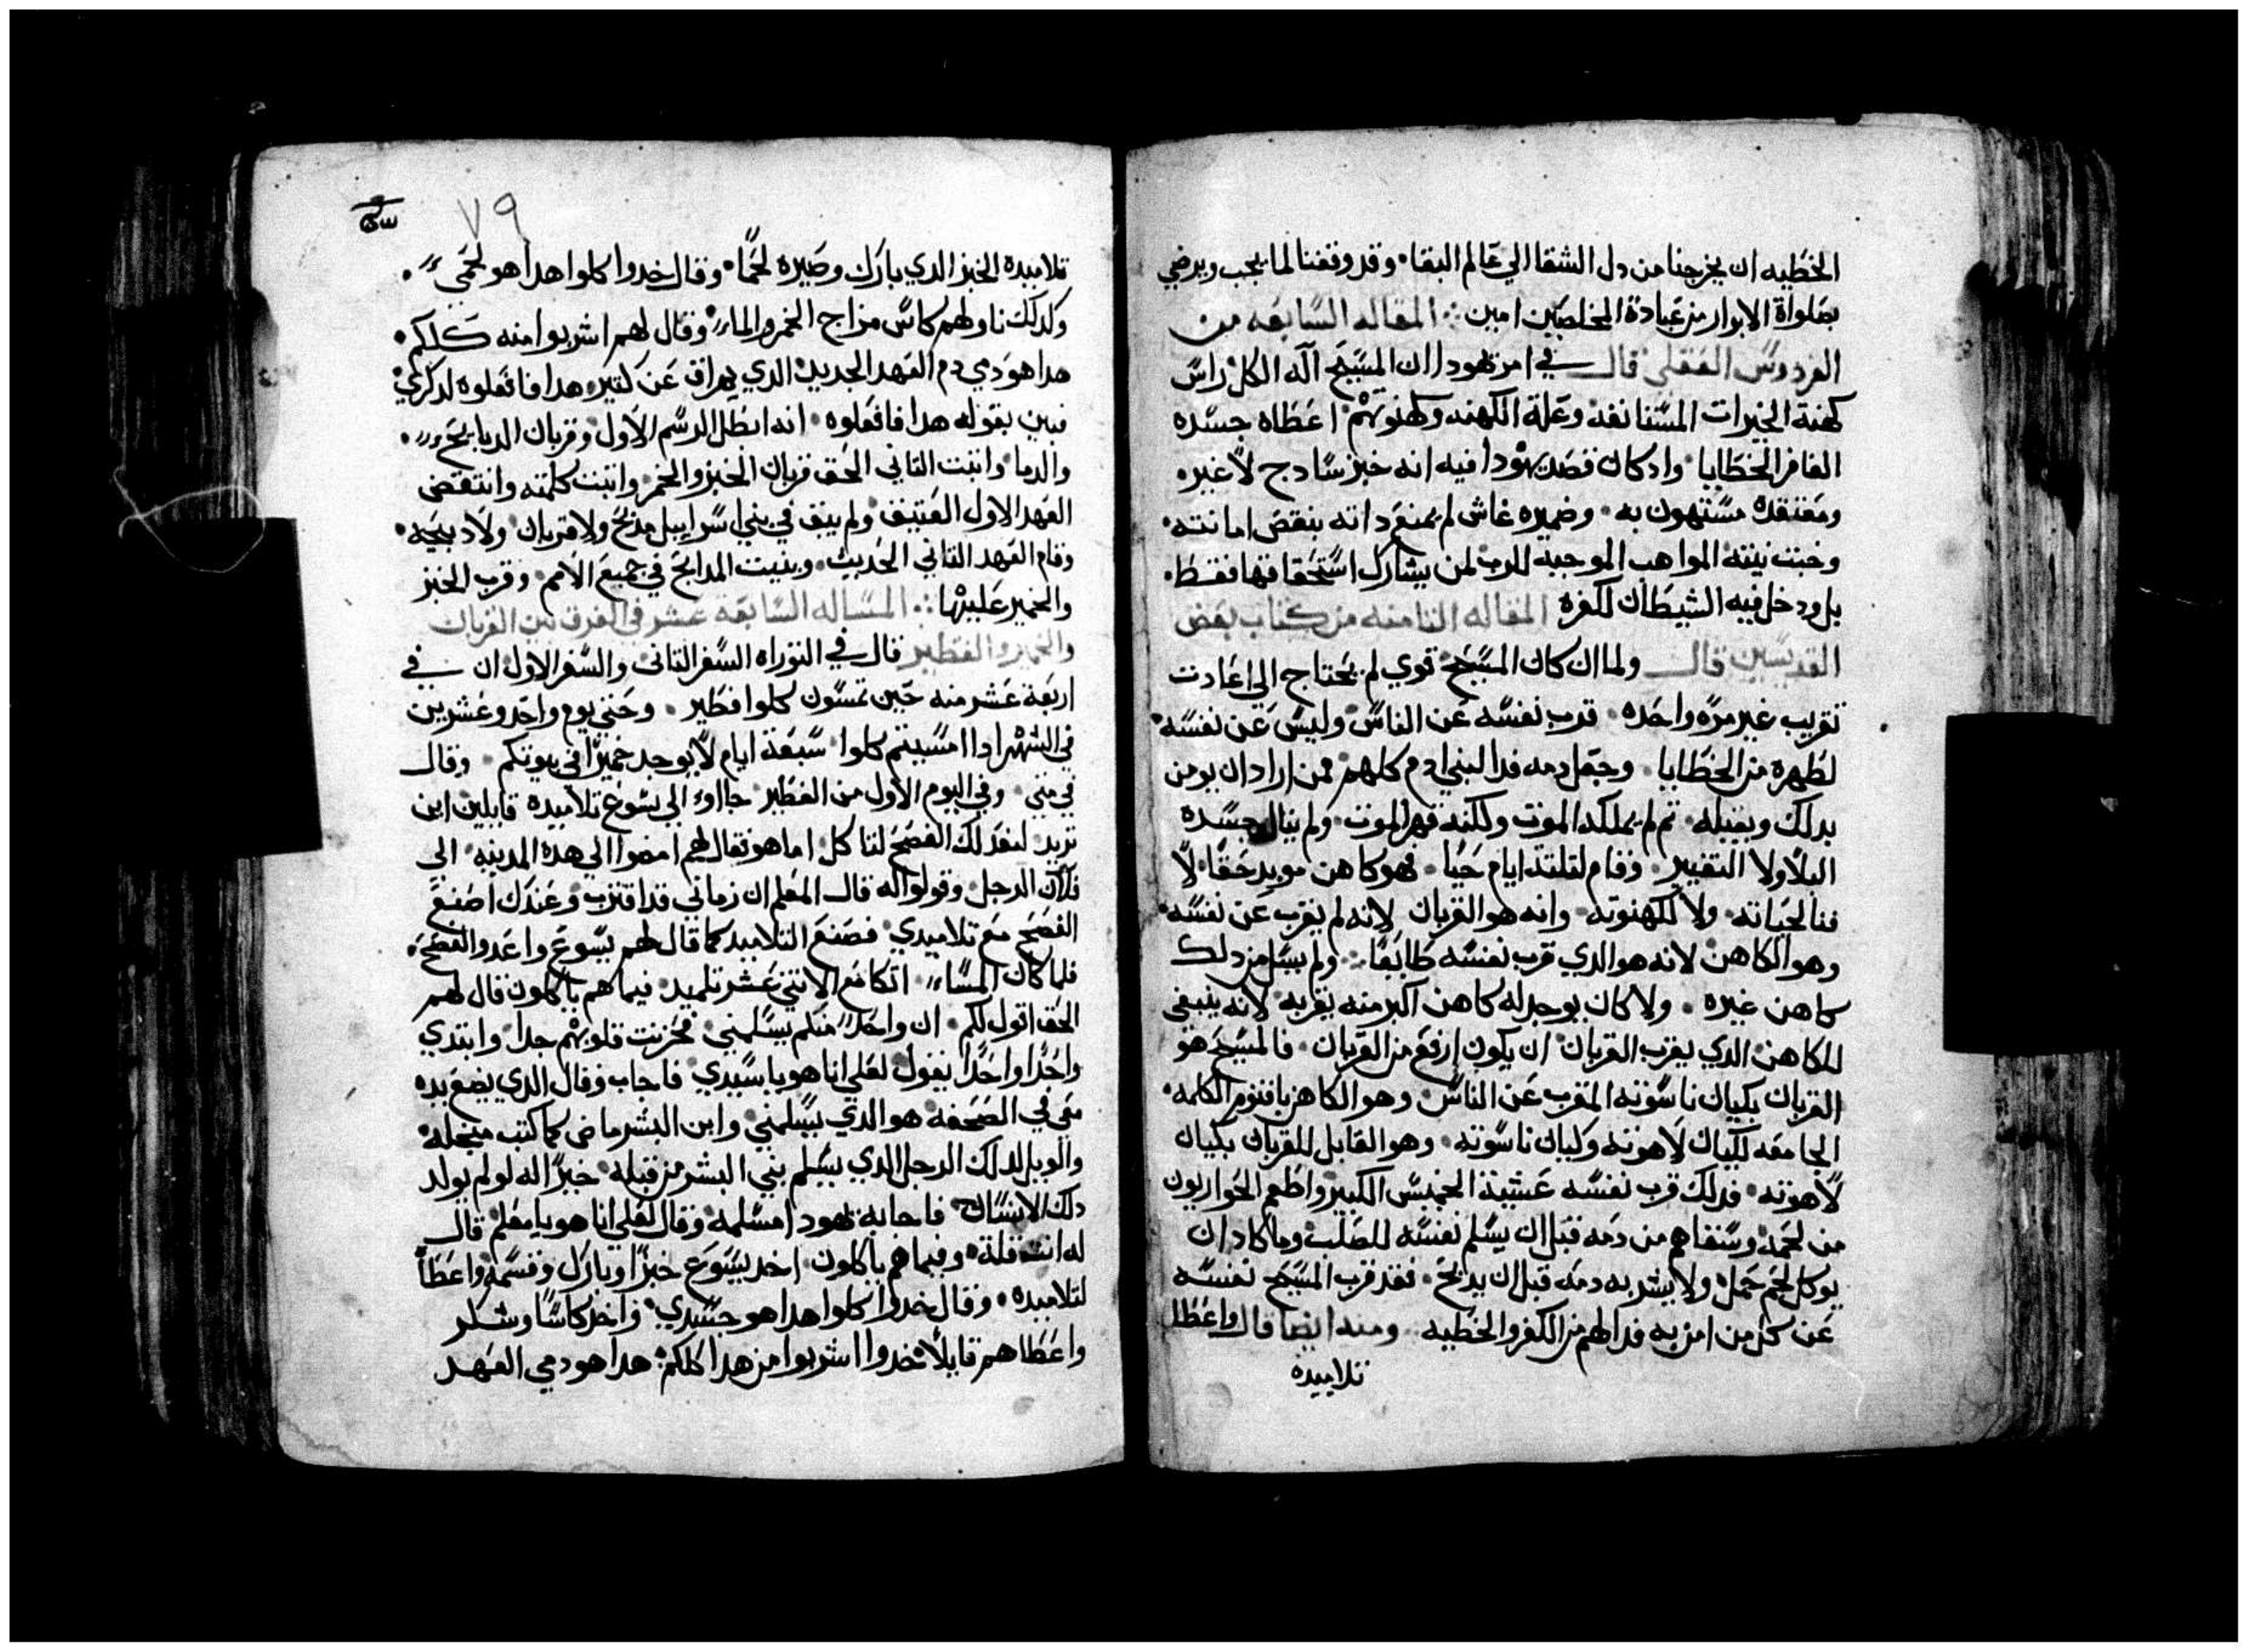 الخطيه ان يخرجنا من دل الشقا الي عالم البقا وقد وقفنا لما يجب ويرضي
بصلواة الابرار من عبادة المخلصين امين المقاله السابعه من
الفردوس العقلي قال في امر يهودا ان المسيح اله الكل راس
كهنة الخيرات المستانفه وعلة الكهنه وكهنوتهم اعطاه جسده
الغافر الخطايا وادكان قصد يهودا فيه انه خبز سادج لا غير
ومعتقده مستهون به وضميره غاش لم يمنع داته بنقص امانته
وخبت نيته المواهب الموجبه للرب لمن يشارك استحقاقها فقط
بل ودخل فيه الشيطان لكفره المقاله التامنه من كتاب بعض
القديسين قال ولما ان كان المسيح قوي لم يحتاج الي اعادت
تقريب غير مره واحده قرب نفسه عن الناس وليس عن نفسه
لطهره من الخطايا وجعل دمه فدا لبني ادم كلهم ممن اراد ان يومن
بدلك ويقبله تم لم يملكه الموت ولكنه قهر الموت ولم ينال جسده
البلا ولا التغيير وقام لتلتة ايام حيا فهو كاهن مويد حقا لا
فنا لحياته ولا لكهنوته وانه هو القربان لانه لم يقرب عن نفسه
وهو الكاهن لانه هو الدي قرب نفسه طايعا ولم يسل من دلك
كاهن غيره ولا كان يوجد له كاهن اكبر منه يقربه لانه ينبغي
للكاهن الدي يقرب القربان ان يكون ارفع من القربان فالمسيح هو
القربان بكيان ناسوته المقرب عن الناس وهو الكاهن باقنوم الكلمه
الجامعه لكيان لاهوته وكيان ناسوته وهو القابل للقربان بكيان
لاهوته فدلك قرب نفسه عشية الخميس الكبير واطعم الحواريون
من لحمه وسقاهم من دمه قبل ان يسلم نفسه للصلب وما كاد ان
يوكل لحم حمل ولا يشر به دمه قبل ان يدبح فقد قرب المسيح نفسه
عن كل من امن به فدا لهم من الكفر والخطيه ومنه ايضا قال واعطا
تلاميده
٧٩
تلاميده الخبز الدي بارك وصيره لحما وقال خدوا كلوا هدا هو لحمي
وكدلك ناولهم كاس مزاج الخمر والماء وقال لهم اشربوا منه كلكم
هدا هو دمي دم العهد الجديد الدي يهراق عن كتير هدا فافعلوه لدكري
فبين بقوله هدا فافعلوه انه ابطل الرسم الاول وقربان الدبايح
والدما واتبت التاني الحق قربان الخبز والخمر واتبت كلمته وانتقض
العهد الاول العتيق ولم يبق في بني اسراييل مدبح ولا قربان ولا دبيحه
وقام العهد التاني الحديث وبنيت المدابح في جميع الامم وقرب الخبز
والخمير عليها المساله السابعة عشر في الفرق بين القربان
والخمير والفطير قال في التوراه السفر التاني والسفر الاول ان في
اربعة عشر منه حين تمسون كلوا فطير وحتي يوم واحد وعشرين
في الشهر ادا امسيتم كلوا سبعة ايام لا يوجد خميرا في بيوتكم وقال
في متي وفي اليوم الاول من الفطير جااوء الي يسوع تلاميده قايلين اين
تريد لنعد لك الفصح لتاكل اما هو فقال لهم امضوا الي هده المدينه الي
فلان الرجل وقولوا له قال المعلم ان زماني قد اقترب وعندك اصنع
الفصح مع تلاميدي فصنع التلاميد كما قال لهم يسوع واعدوا الفصح
فلما كان المساء اتكا مع الاتني عشر تلميد فيما هم ياكلون قال لهم
الحق اقول لكم ان واحد منكم يسلمني فحزنت قلوبهم جدا وابتدي
واحدا واحدا يقول لعلي انا هو يا سيدي فاجاب وقال الدي يضع يده
معي في الصحفه هو الدي يسلمني وابن البشر ماض كما كتب من اجله
والويل لدلك الرجل الدي يسلم بني البشر من قبله خيرا له لو لم يولد
دلك الانسان فاجابه يهودا مسلمه وقال لعلي انا هو يا معلم قال
له انت قلة وفيما هم ياكلون اخد يسوع خبزا وبارك وقسمه واعطا
لتلاميده وقال خدوا كلوا هدا هو جسدي واخد كاسا وشكر
واعطاهم قايلا خدوا اشربوا من هدا كلكم هدا هو دمي العهد